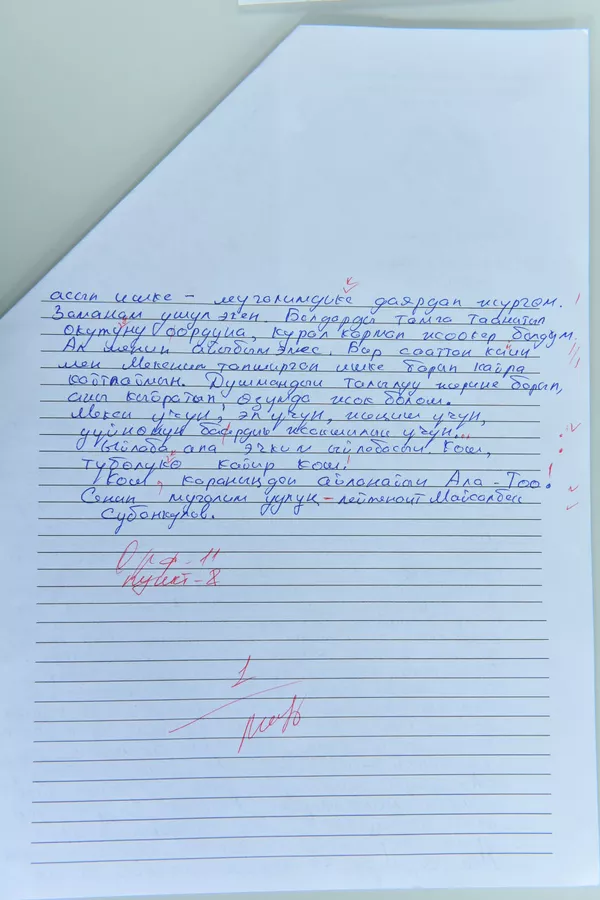 асып ишке – мугалимдике даярдап жүргөм.
Заманам ушул экен. Балдарды тамга таанытып
окутуну ордуна, курал кармап жоокер болдум.
Ал менин айыбым эмес. Бар сааттон кийин
мен Мекеним тапшырган ишке барып кайра
кайтпаймын. Душмандын талылуу жерине барып,
аны кыйратып өзүмдө жок болом.
Мекен үчүн, эл үчүн, жеңиш үчүн,
дүйнөнүн баардык жакшылык үчүн...
Ыйлаба, апа эчким ыйлабасын. Кош,
түбөлүкө кайыр кош!
Кош, караныңдон айланайын Ала-Тоо!
Сенин мугалим уулуң – лейтенант Майсалбек
Субанкулов.
Орф-11
пункт-8
1